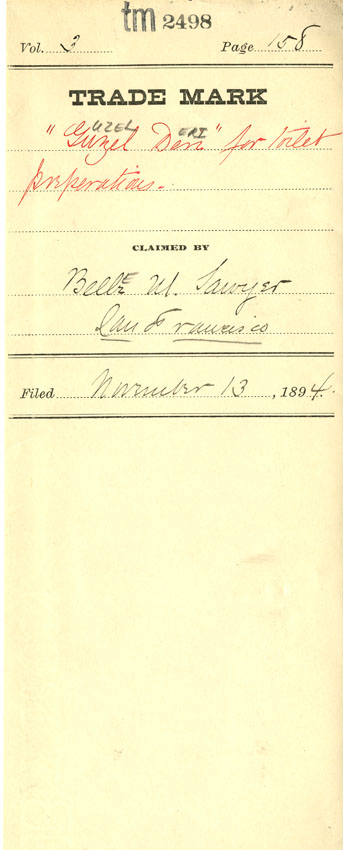 tm 2498
Vol. 3 Page 158
TRADE MARK
UZEL ERI
"Guzel Deri" for toilet
preperations.
CLAIMED BY
Belle M. Sawyer
San Francisco
Filed November 13, 1894.